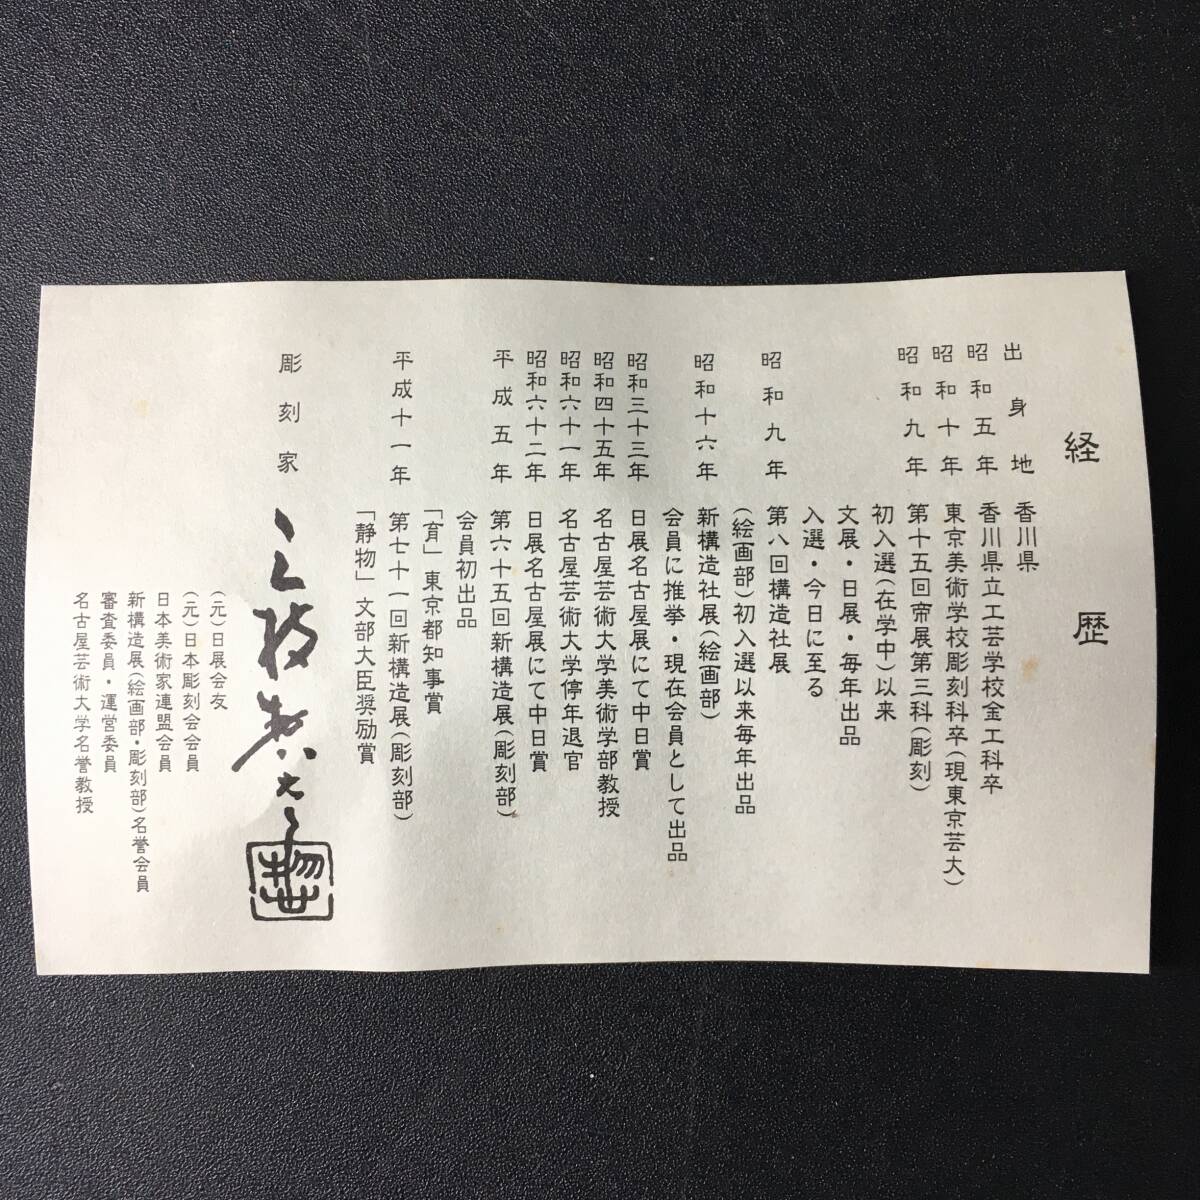 経歴
出身地 香川県
昭和五年 香川県立工芸学校金工科卒
昭和十年 東京美術学校彫刻科卒(現東京芸大)
昭和九年 第十五回帝展第三科(彫刻)
初入選(在学中)以来
文展・日展・毎年出品
入選・今日に至る
昭和九年 第八回構造社展
(絵画部)初入選以来毎年出品
昭和十六年 新構造社展(絵画部)
会員に推挙・現在会員として出品
昭和三十三年 日展名古屋展にて中日賞
昭和四十五年 名古屋芸術大学美術学部教授
昭和六十一年 名古屋芸術大学停年退官
昭和六十二年 日展名古屋展にて中日賞
平成五年 第六十五回新構造展(彫刻部)
会員初出品
「育」東京都知事賞
平成十一年 第七十一回新構造展(彫刻部)
「静物」文部大臣奨励賞
彫刻家 三枝惣太郎
(元)日展会友
(元)日本彫刻会会員
日本美術家連盟会員
新構造展(絵画部・彫刻部)名誉会員
審査委員・運営委員
名古屋芸術大学名誉教授